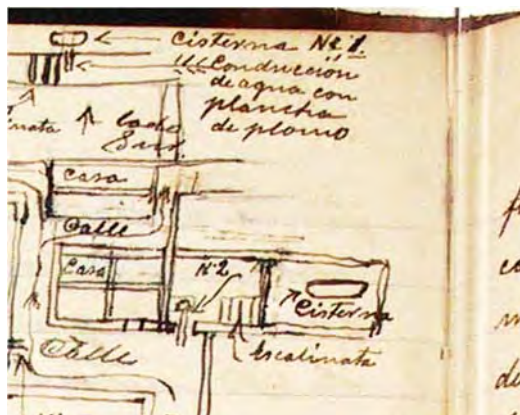 Cisterna Nº 1.
Conducción
de agua con
plancha
de plomo
inata
lado
Sur.
Casa
Calle
Casa
Nº2
Cisterna
Escalinata
Calle